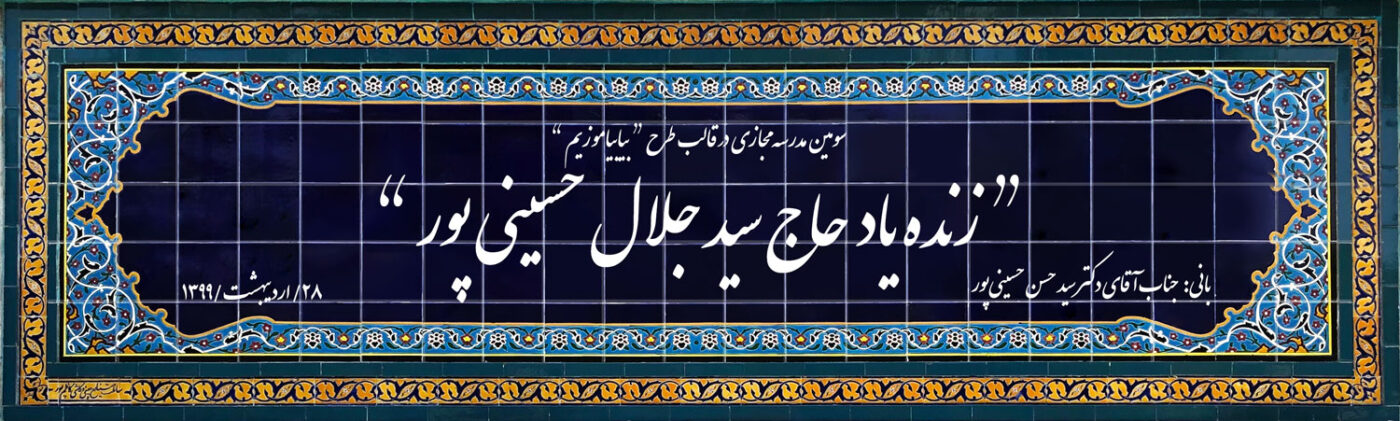 سومین مدرسه مجازی در قالب طرح "بیابیاموزیم"
"زنده یاد حاج سید جلال حسینی پور"
بانی: جناب آقای دکتر سید حسن حسینی پور
۲۸/اردیبهشت/۱۳۹۹